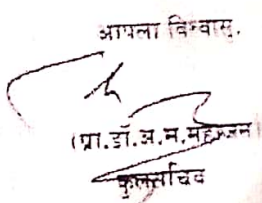 आपला विश्वासू,
(प्रा.डॉ.अ.म.महाजन
कुलसचिव